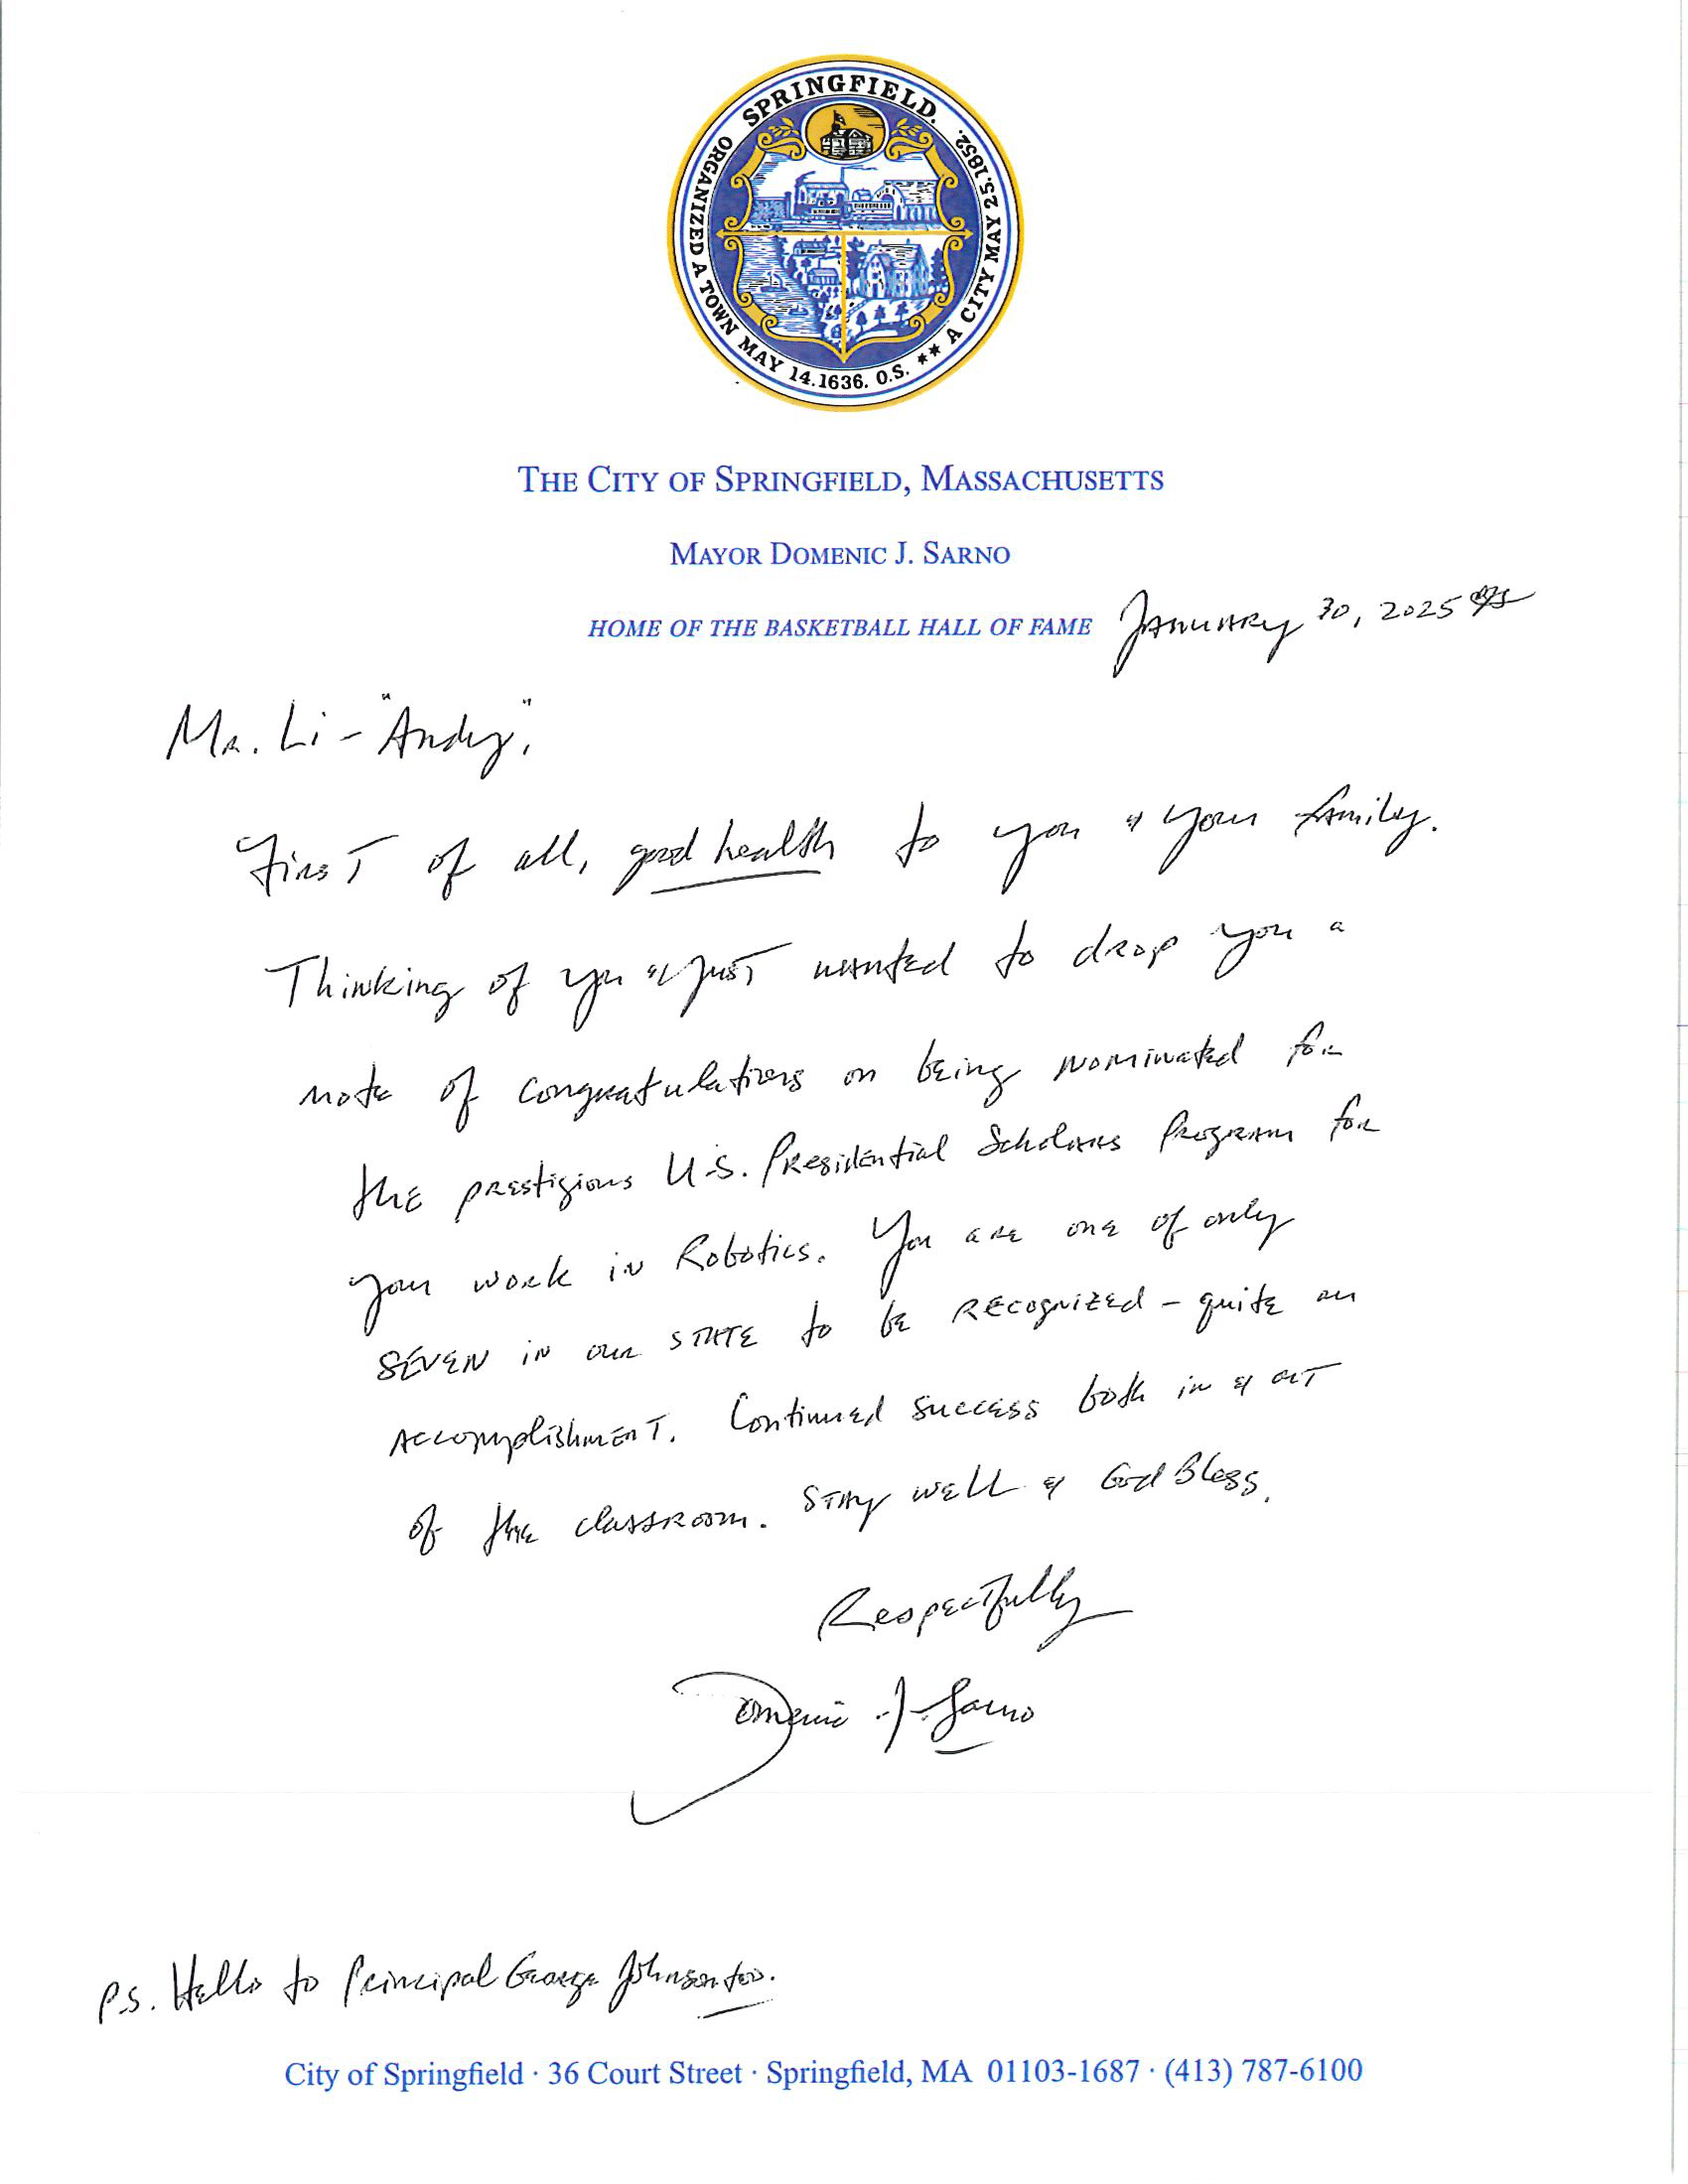 SPRINGFIELD.
ORGANIZED A TOWN MAY 14.1636. O.S. ** A CITY MAY 25.1852.
THE CITY OF SPRINGFIELD, MASSACHUSETTS
MAYOR DOMENIC J. SARNO
HOME OF THE BASKETBALL HALL OF FAME
January 30, 2025
Mr. Li - "Andy",
First of all, good health to you & your family.
Thinking of you & just wanted to drop you a
note of congratulations on being nominated for
the prestigious U.S. Presidential Scholars Program for
your work in Robotics. You are one of only
seven in our state to be recognized - quite an
accomplishment. Continued success both in & out
of the classroom. Stay well & God Bless.
Respectfully
Domenic J. Sarno
P.S. Hello to Principal George Johnson too.
City of Springfield · 36 Court Street · Springfield, MA 01103-1687 · (413) 787-6100